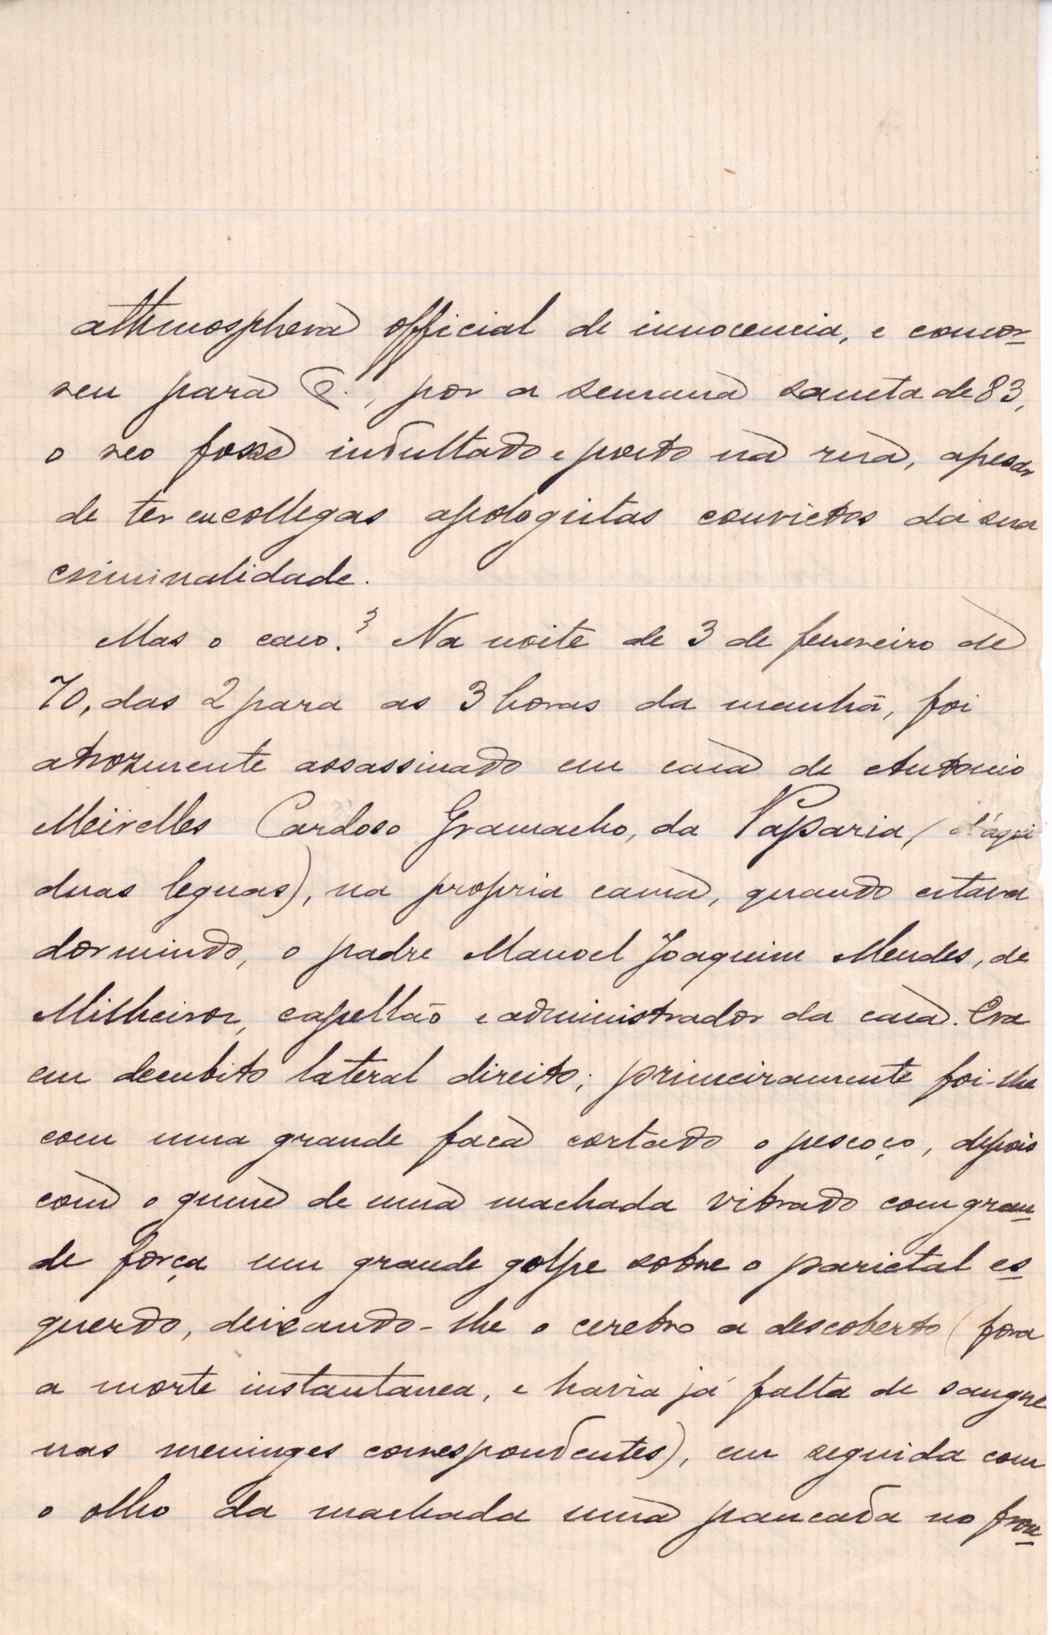 athmosphera official de innocencia, e concor-
reu para Q., por a semana sancta de 83,
o reo fosse indultado e posto na rua, apesar
de ter eu collegas apologistas convictos da sua
criminalidade.
Mas o caso? Na noite de 3 de fevereiro de
70, das 2 para as 3 horas da manhã, foi
atrozmente assassinado em casa de Antonio
Meirelles Cardoso Gramacho, da Vaparia, (d'aqui
duas leguas), na propria cama, quando estava
dormindo, o padre Manoel Joaquim Mendes, de
Milheiroz, capellão e administrador da casa. Era
em decubito lateral direito; primeiramente foi-lhe
com uma grande faca cortado o pescoço, depois
com o gume de uma machada vibrado com gran-
de força um grande golpe sobre o parietal es-
querdo, deixando-lhe o cerebro a descoberto (fora
a morte instantanea, e havia já falta de sangue
nas meninges correspondentes), em seguida com
o olho da machada uma pancada no fron-